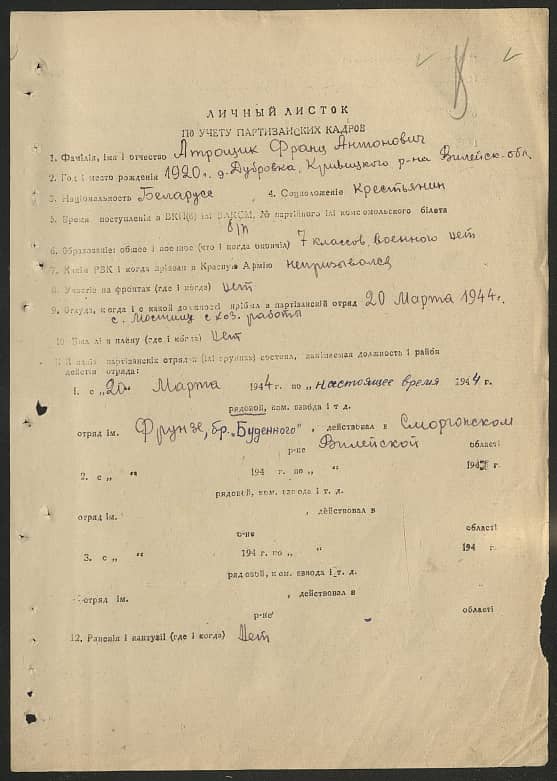 ЛИЧНЫЙ ЛИСТОК
ПО УЧЕТУ ПАРТИЗАНСКИХ КАДРОВ
1. Фамілія, імя і отчество Атрощик Франц Антонович
2. Год і место рождения 1920г. д. Дубровка, Кривицкого р-на Вилейск-обл.
3. Національность Беларусс 4. Соцположение Крестьянин
5. Время поступления в ВКП(б) ілі ВЛКСМ, № партійного ілі комсомольского білета
б/п
6. Образование: общее і военное (кто і когда окончіл) 7 классов, военного нет
7. Каким РВК і когда прізван в Красную Армію непризывался
8. Участіе на фронтах (где і когда) нет
9. Откуда, когда і с какой должності прібыл в партізанскій отряд 20 Марта 1944г.
с. Мостище с хоз. работы
10. Был лі в плену (где і когда) нет
11. В каких партізанскіх отрядах (ілі группах) состоял, занімаемая должность і район
действія отряда:
1. с „20“ Марта 1944 г. по „настоящее время 1944 г.
рядовой, ком. взвода і т. д.
отряд ім. Фрунзе, бр. „Буденного“, действовал в Сморгонском
р-не Вилейской області
2. с „ “ 194 г. по „ “ 194 г.
рядовой, ком. взвода і т. д.
отряд ім. , действовал в
р-не області
3. с „ “ 194 г. по „ “ 194 г.
рядовой, ком. взвода і т. д.
отряд ім. , действовал в
р-не області
12. Ранения і контузіі (где і когда) Нет